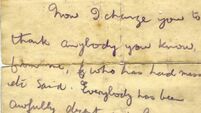 Now I charge you to
thank anybody you know,
from me, & who has had mass
etc said. Everybody has been
awfully